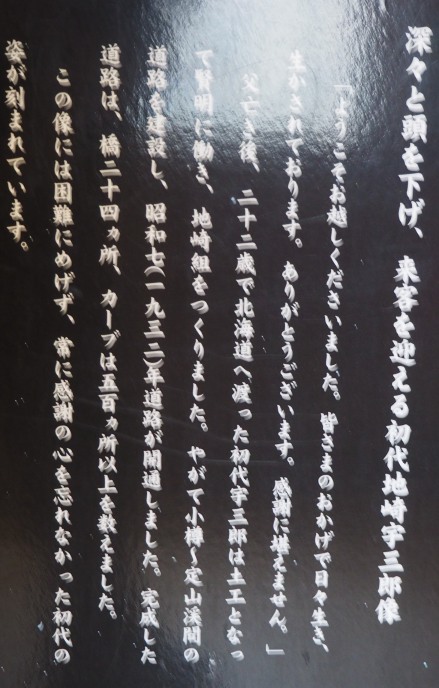 深々と頭を下げ、来客を迎える初代地崎宇三郎像
「ようこそお越しくださいました。皆さまのおかげで日々生き、
生かされております。ありがとうございます。感謝に堪えません。」
父亡き後、二十二歳で北海道へ渡った初代宇三郎は土工となっ
て賢明に働き、地崎組をつくりました。やがて小樽〜定山渓間の
道路を建設し、昭和七(一九三二)年道路が開通しました。完成した
道路は、橋二十四ヵ所、カーブは五百ヵ所以上を数えました。
この像には困難にめげず、常に感謝の心を忘れなかった初代の
姿が刻まれています。